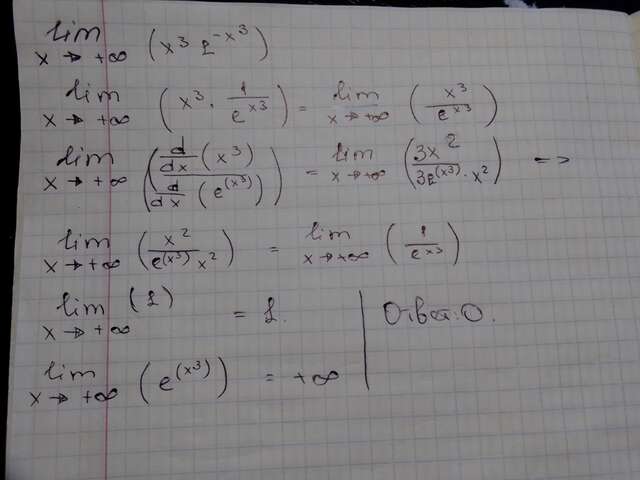 lim x→+∞ (x³ e^(-x³))
lim x→+∞ (x³ · 1/e^(x³)) = lim x→+∞ (x³/e^(x³))
lim x→+∞ (d/dx (x³) / d/dx (e^(x³))) = lim x→+∞ (3x²/3e^(x³) · x²) =>
lim x→+∞ (x²/e^(x³) x²) = lim x→+∞ (1/e^(x³))
lim x→+∞ (1) = 1.
Ответ: 0.
lim x→+∞ (e^(x³)) = +∞